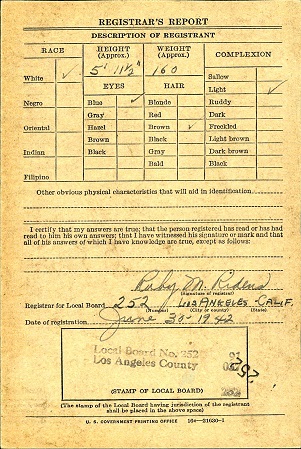 REGISTRAR'S REPORT
DESCRIPTION OF REGISTRANT
RACE HEIGHT (Approx.) WEIGHT (Approx.) COMPLEXION
White ✓ 5' 11½" 160 Sallow
EYES HAIR Light ✓
Negro Blue ✓ Blonde Ruddy
Gray Red Dark
Oriental Hazel Brown ✓ Freckled
Brown Black Light brown
Indian Black Gray Dark brown
Bald Black
Filipino
Other obvious physical characteristics that will aid in identification
I certify that my answers are true; that the person registered has read or has had
read to him his own answers; that I have witnessed his signature or mark and that
all of his answers of which I have knowledge are true, except as follows:
Ruby M.
(Signature of registrar)
Registrar for Local Board 252 LOS ANGELES CALIF.
(Number) (City or county) (State)
Date of registration June 30-1942
Local Board No. 252
Los Angeles County
252
(STAMP OF LOCAL BOARD)
(The stamp of the Local Board having jurisdiction of the registrant
shall be placed in the above space)
U. S. GOVERNMENT PRINTING OFFICE 16—21630-1